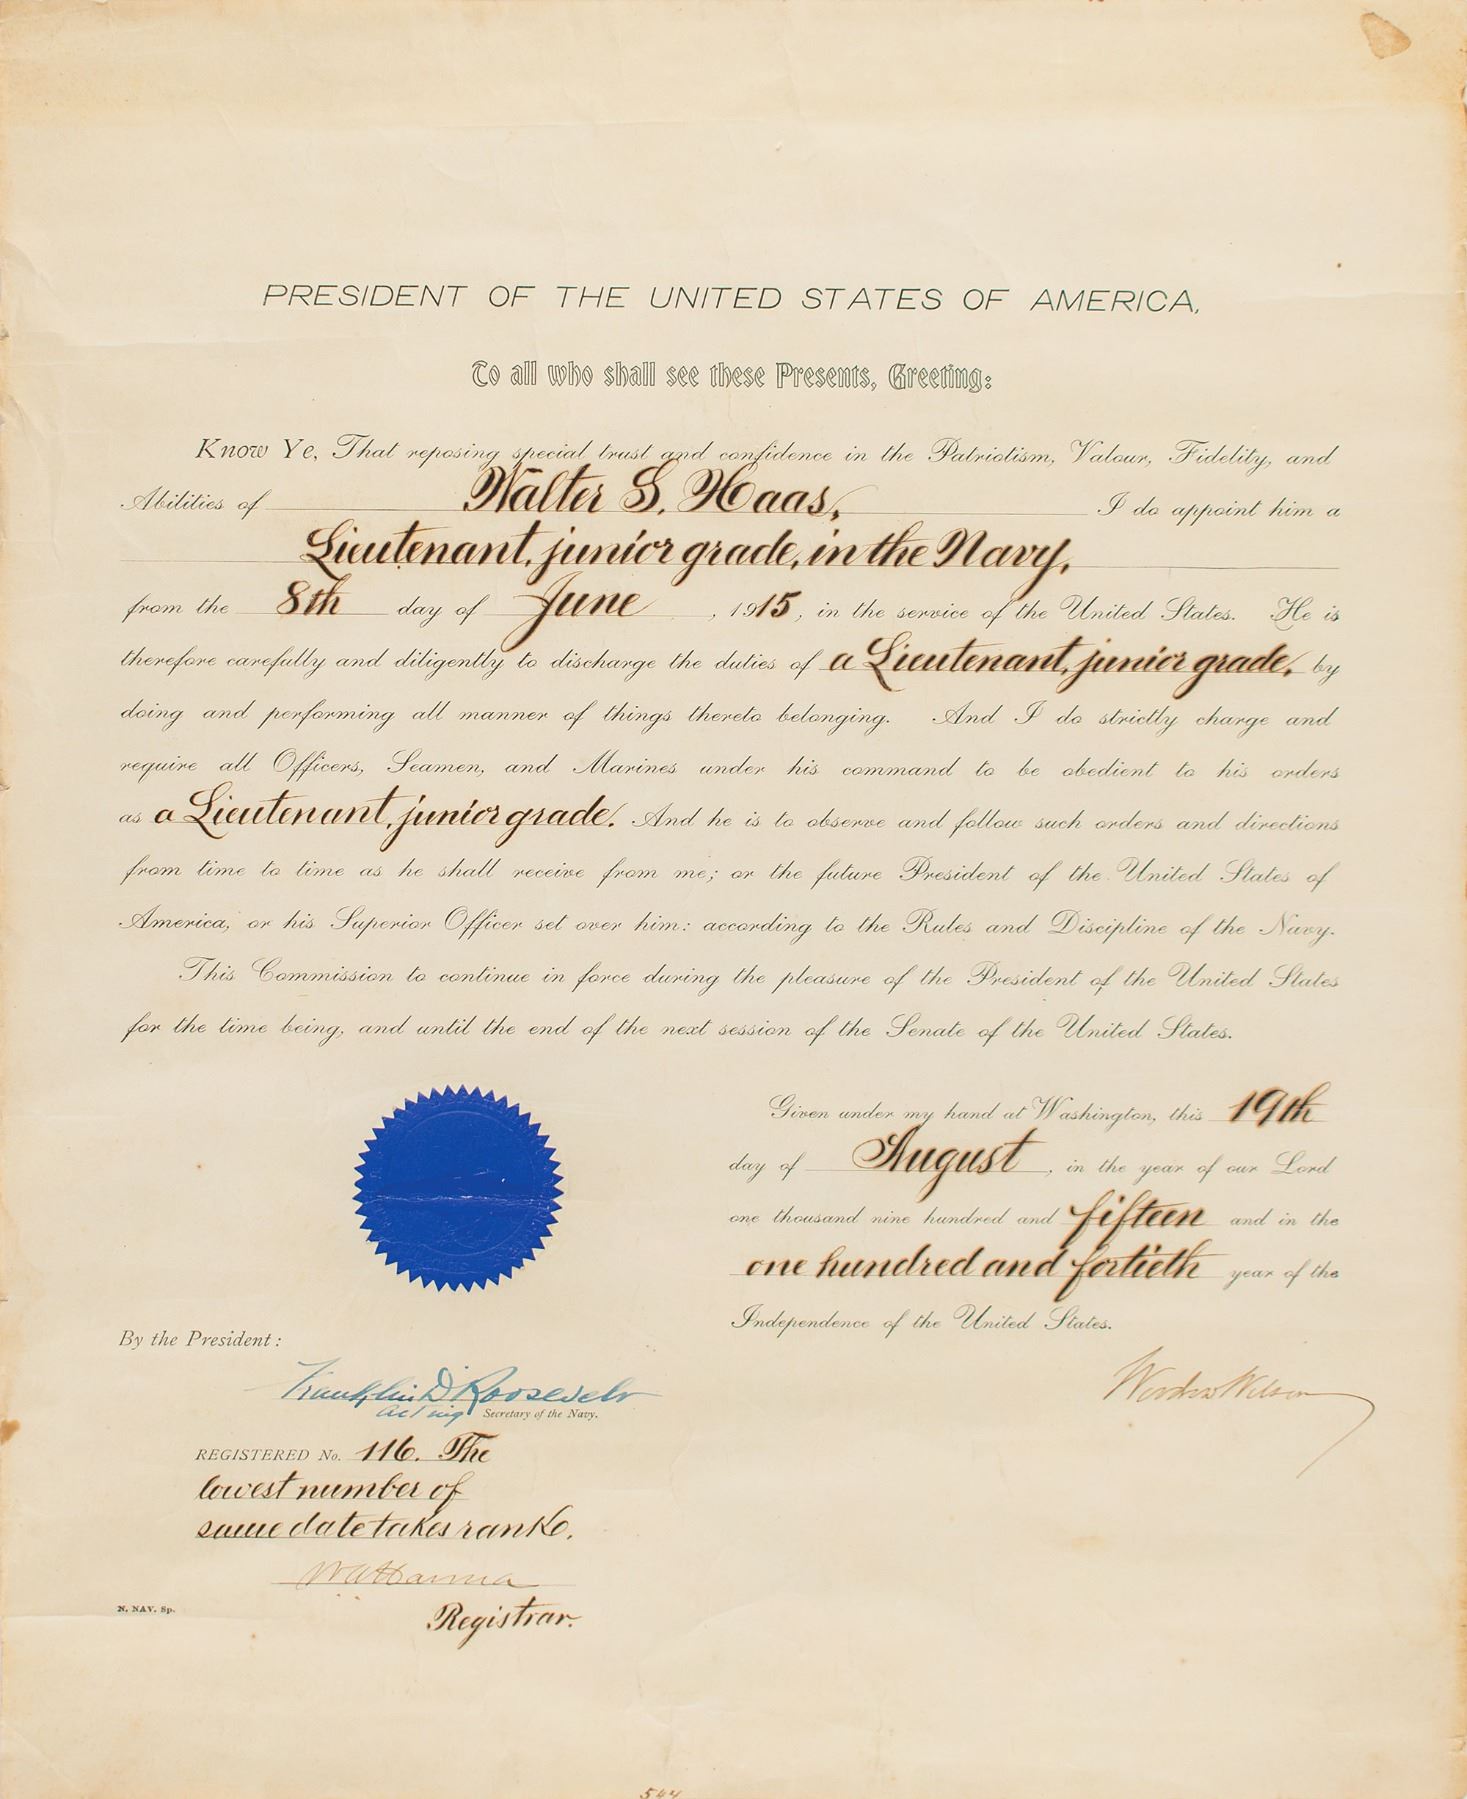 PRESIDENT OF THE UNITED STATES OF AMERICA,
To all who shall see these Presents, Greeting:
Know Ye, That reposing special trust and confidence in the Patriotism, Valour, Fidelity, and
Abilities of Walter S. Haas, I do appoint him a
Lieutenant, junior grade, in the Navy,
from the 8th day of June, 1915, in the service of the United States. He is
therefore carefully and diligently to discharge the duties of a Lieutenant, junior grade, by
doing and performing all manner of things thereto belonging. And I do strictly charge and
require all Officers, Seamen, and Marines under his command to be obedient to his orders
as a Lieutenant, junior grade. And he is to observe and follow such orders and directions
from time to time as he shall receive from me; or the future President of the United States of
America, or his Superior Officer set over him: according to the Rules and Discipline of the Navy.
This Commission to continue in force during the pleasure of the President of the United States
for the time being, and until the end of the next session of the Senate of the United States.
Given under my hand at Washington, this 19th
day of August, in the year of our Lord
one thousand nine hundred and fifteen and in the
one hundred and fortieth year of the
Independence of the United States.
By the President:
Woodrow Wilson
Franklin D Roosevelt
acting Secretary of the Navy.
REGISTERED No. 116. The
lowest number of
same date takes rank.
WAHanna
Registrar.
N. NAV. Sp.
544